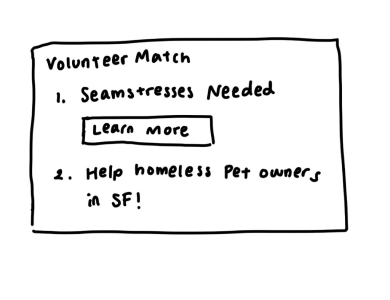 Volunteer Match
1. Seamstresses Needed
Learn more
2. Help homeless Pet owners
in SF!